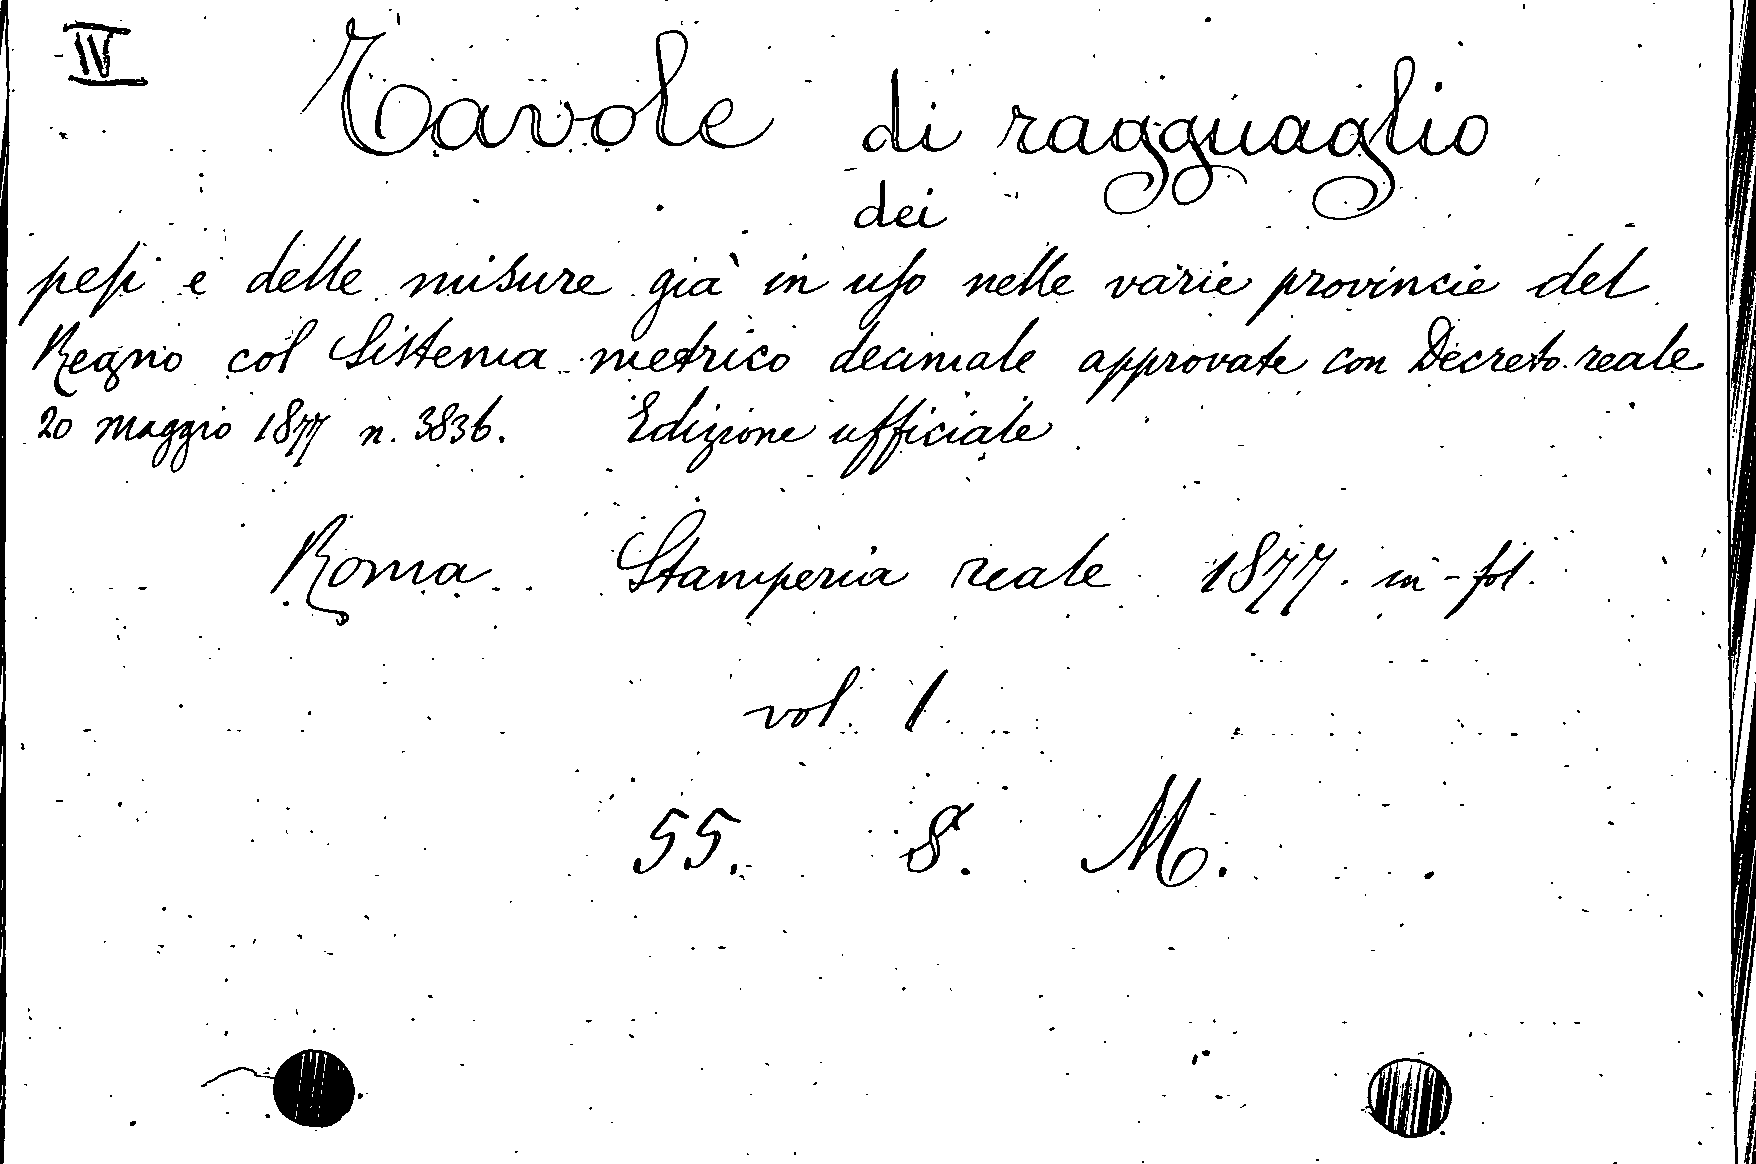 IV
Tavole di ragguaglio
dei
pesi e delle misure già in uso nelle varie provincie del
Regno col Sistema metrico decimale approvate con Decreto reale
20 maggio 1877 n. 3836. Edizione ufficiale
Roma Stamperia reale 1877. in-fol.
vol. 1.
55. 8. M.